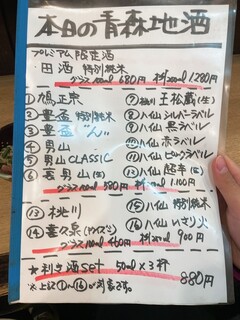 本日の青森地酒
プレミアム限定酒
・田酒 特別純米
グラス100ml 680円 枡200ml 1.280円
① 鳩正宗
② 豊盃 特別純米
③ 豊盃 ん
④ 男山
⑤ 男山 CLASSIC
⑥ 男山(生)
⑦ 王松蔵(生)
⑧ 八仙 シルバーラベル
⑨ 八仙 黒ラベル
⑩ 八仙 赤ラベル
⑪ 八仙 ピンクラベル
⑫ 八仙 (生)
グラス100ml 580円 枡200ml 1.100円
⑬ 桃川
⑭ 喜久泉
⑮ 八仙 特別純米
⑯ 八仙 いさり火
グラス100ml 460円 枡200ml 900円
★利き酒set 50ml×3杯
880円
※上記①〜⑯が対象です。